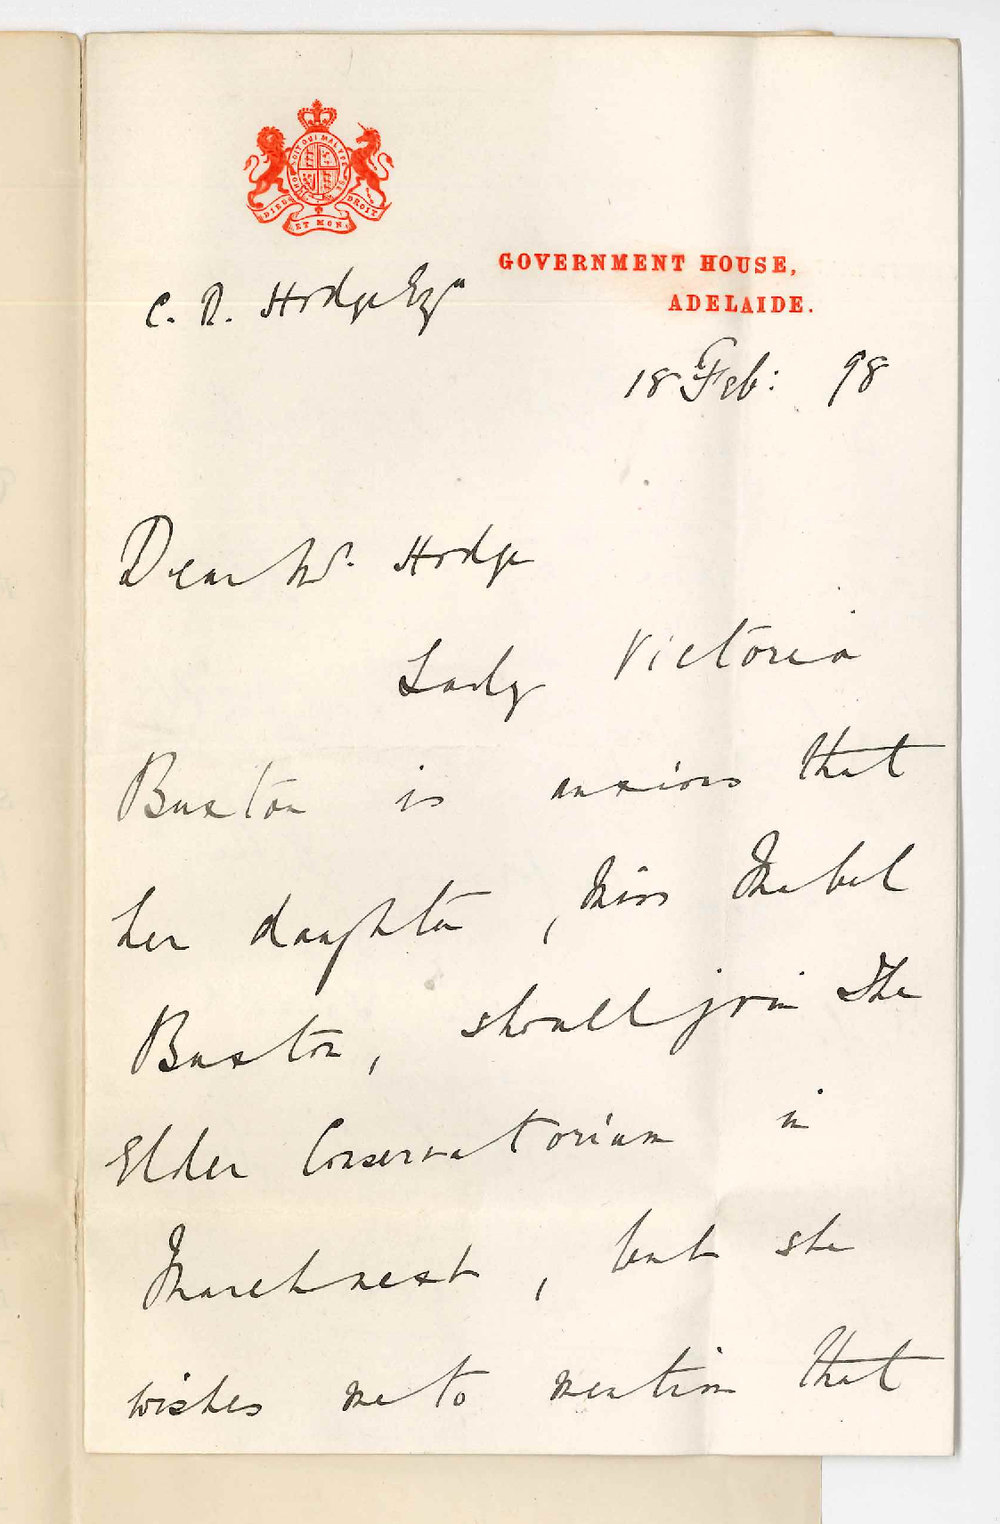 HONI SOIT QUI MAL Y PENSE
DIEU ET MON DROIT
GOVERNMENT HOUSE,
ADELAIDE.
C. R. Hodge Esqre
18 Feb: 98
Dear Mr. Hodge
Lady Victoria
Buxton is anxious that
her daughter, Miss Mabel
Buxton, should join The
Elder Conservatorium in
March next, but she
wishes me to mention that